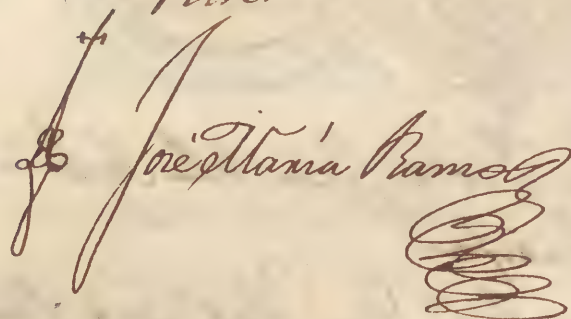 José María Ramos